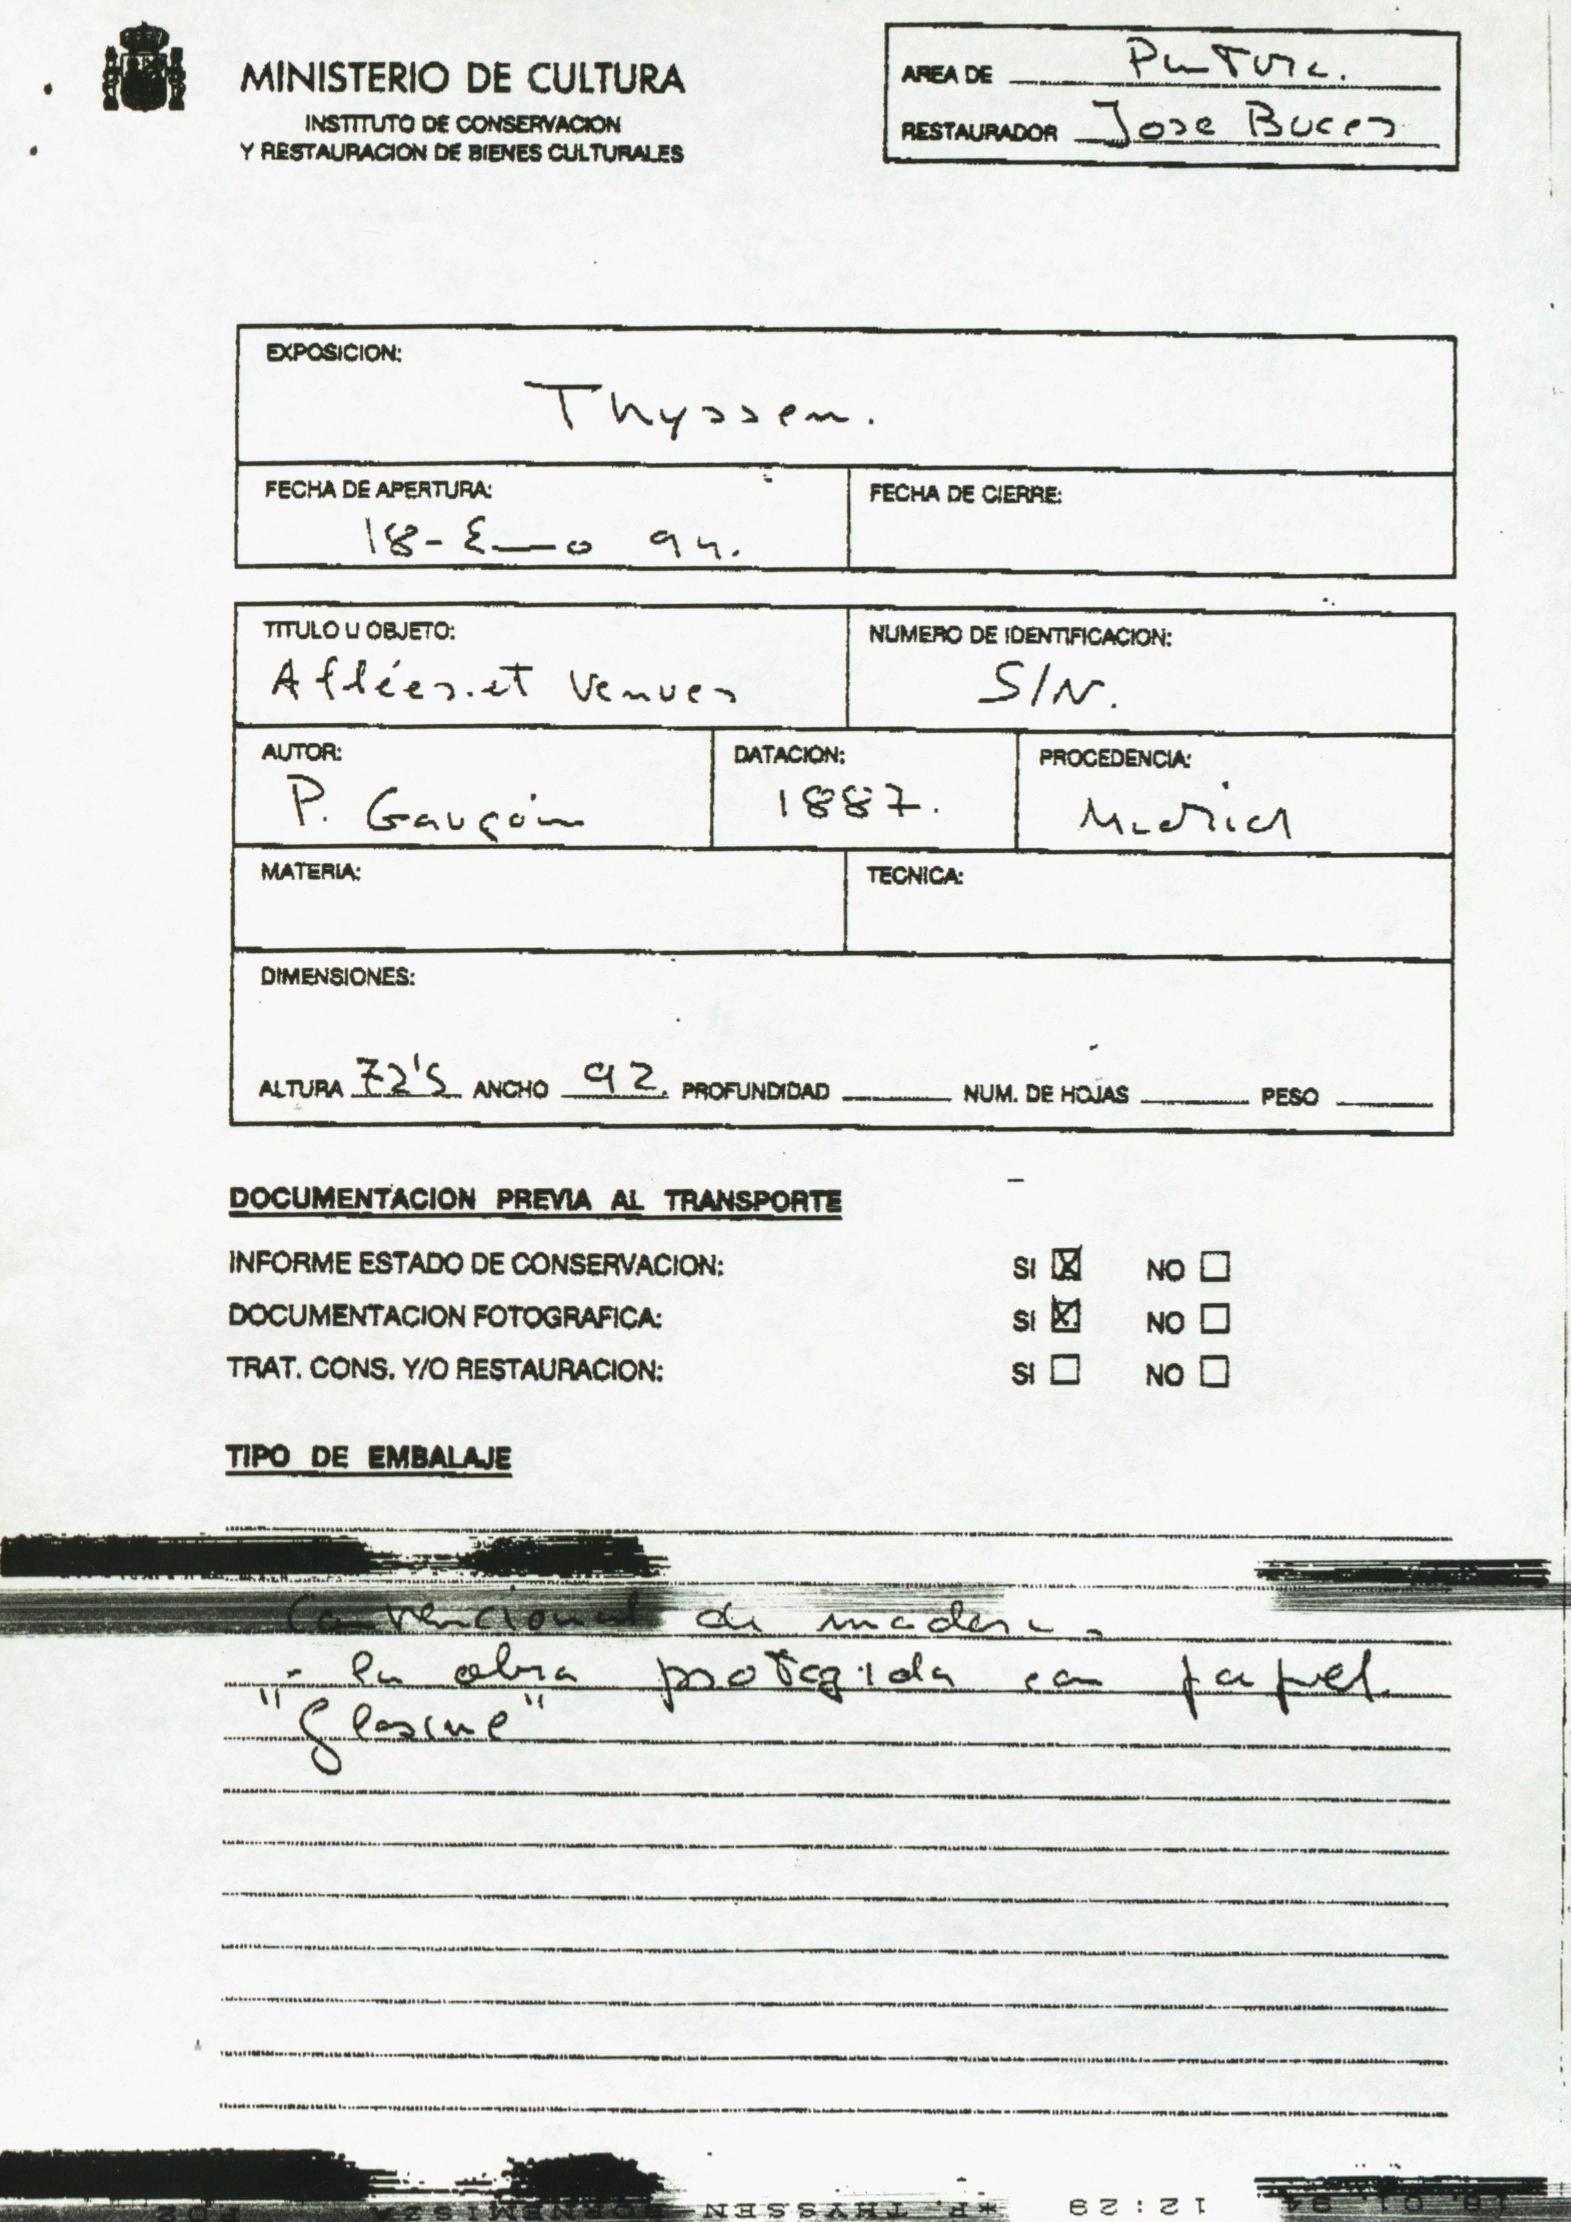 MINISTERIO DE CULTURA
INSTITUTO DE CONSERVACION
Y RESTAURACION DE BIENES CULTURALES
AREA DE Pintura.
RESTAURADOR Jose Buces
EXPOSICION:
Thyssen.
FECHA DE APERTURA:
18-Enero 94.
FECHA DE CIERRE:
TITULO U OBJETO:
Allées et Venues
NUMERO DE IDENTIFICACION:
S/N.
AUTOR:
P. Gauguin
DATACION:
1887.
PROCEDENCIA:
Madrid
MATERIA:
TECNICA:
DIMENSIONES:
ALTURA 72'5 ANCHO 92. PROFUNDIDAD NUM. DE HOJAS PESO
DOCUMENTACION PREVIA AL TRANSPORTE
INFORME ESTADO DE CONSERVACION: SI X NO
DOCUMENTACION FOTOGRAFICA: SI X NO
TRAT. CONS. Y/O RESTAURACION: SI NO
TIPO DE EMBALAJE
Convencional de madera.
- la obra protegida con papel
"Glasine"
18. 01. 94 12:29 *F. THYSSEN BORNEMISZA P02